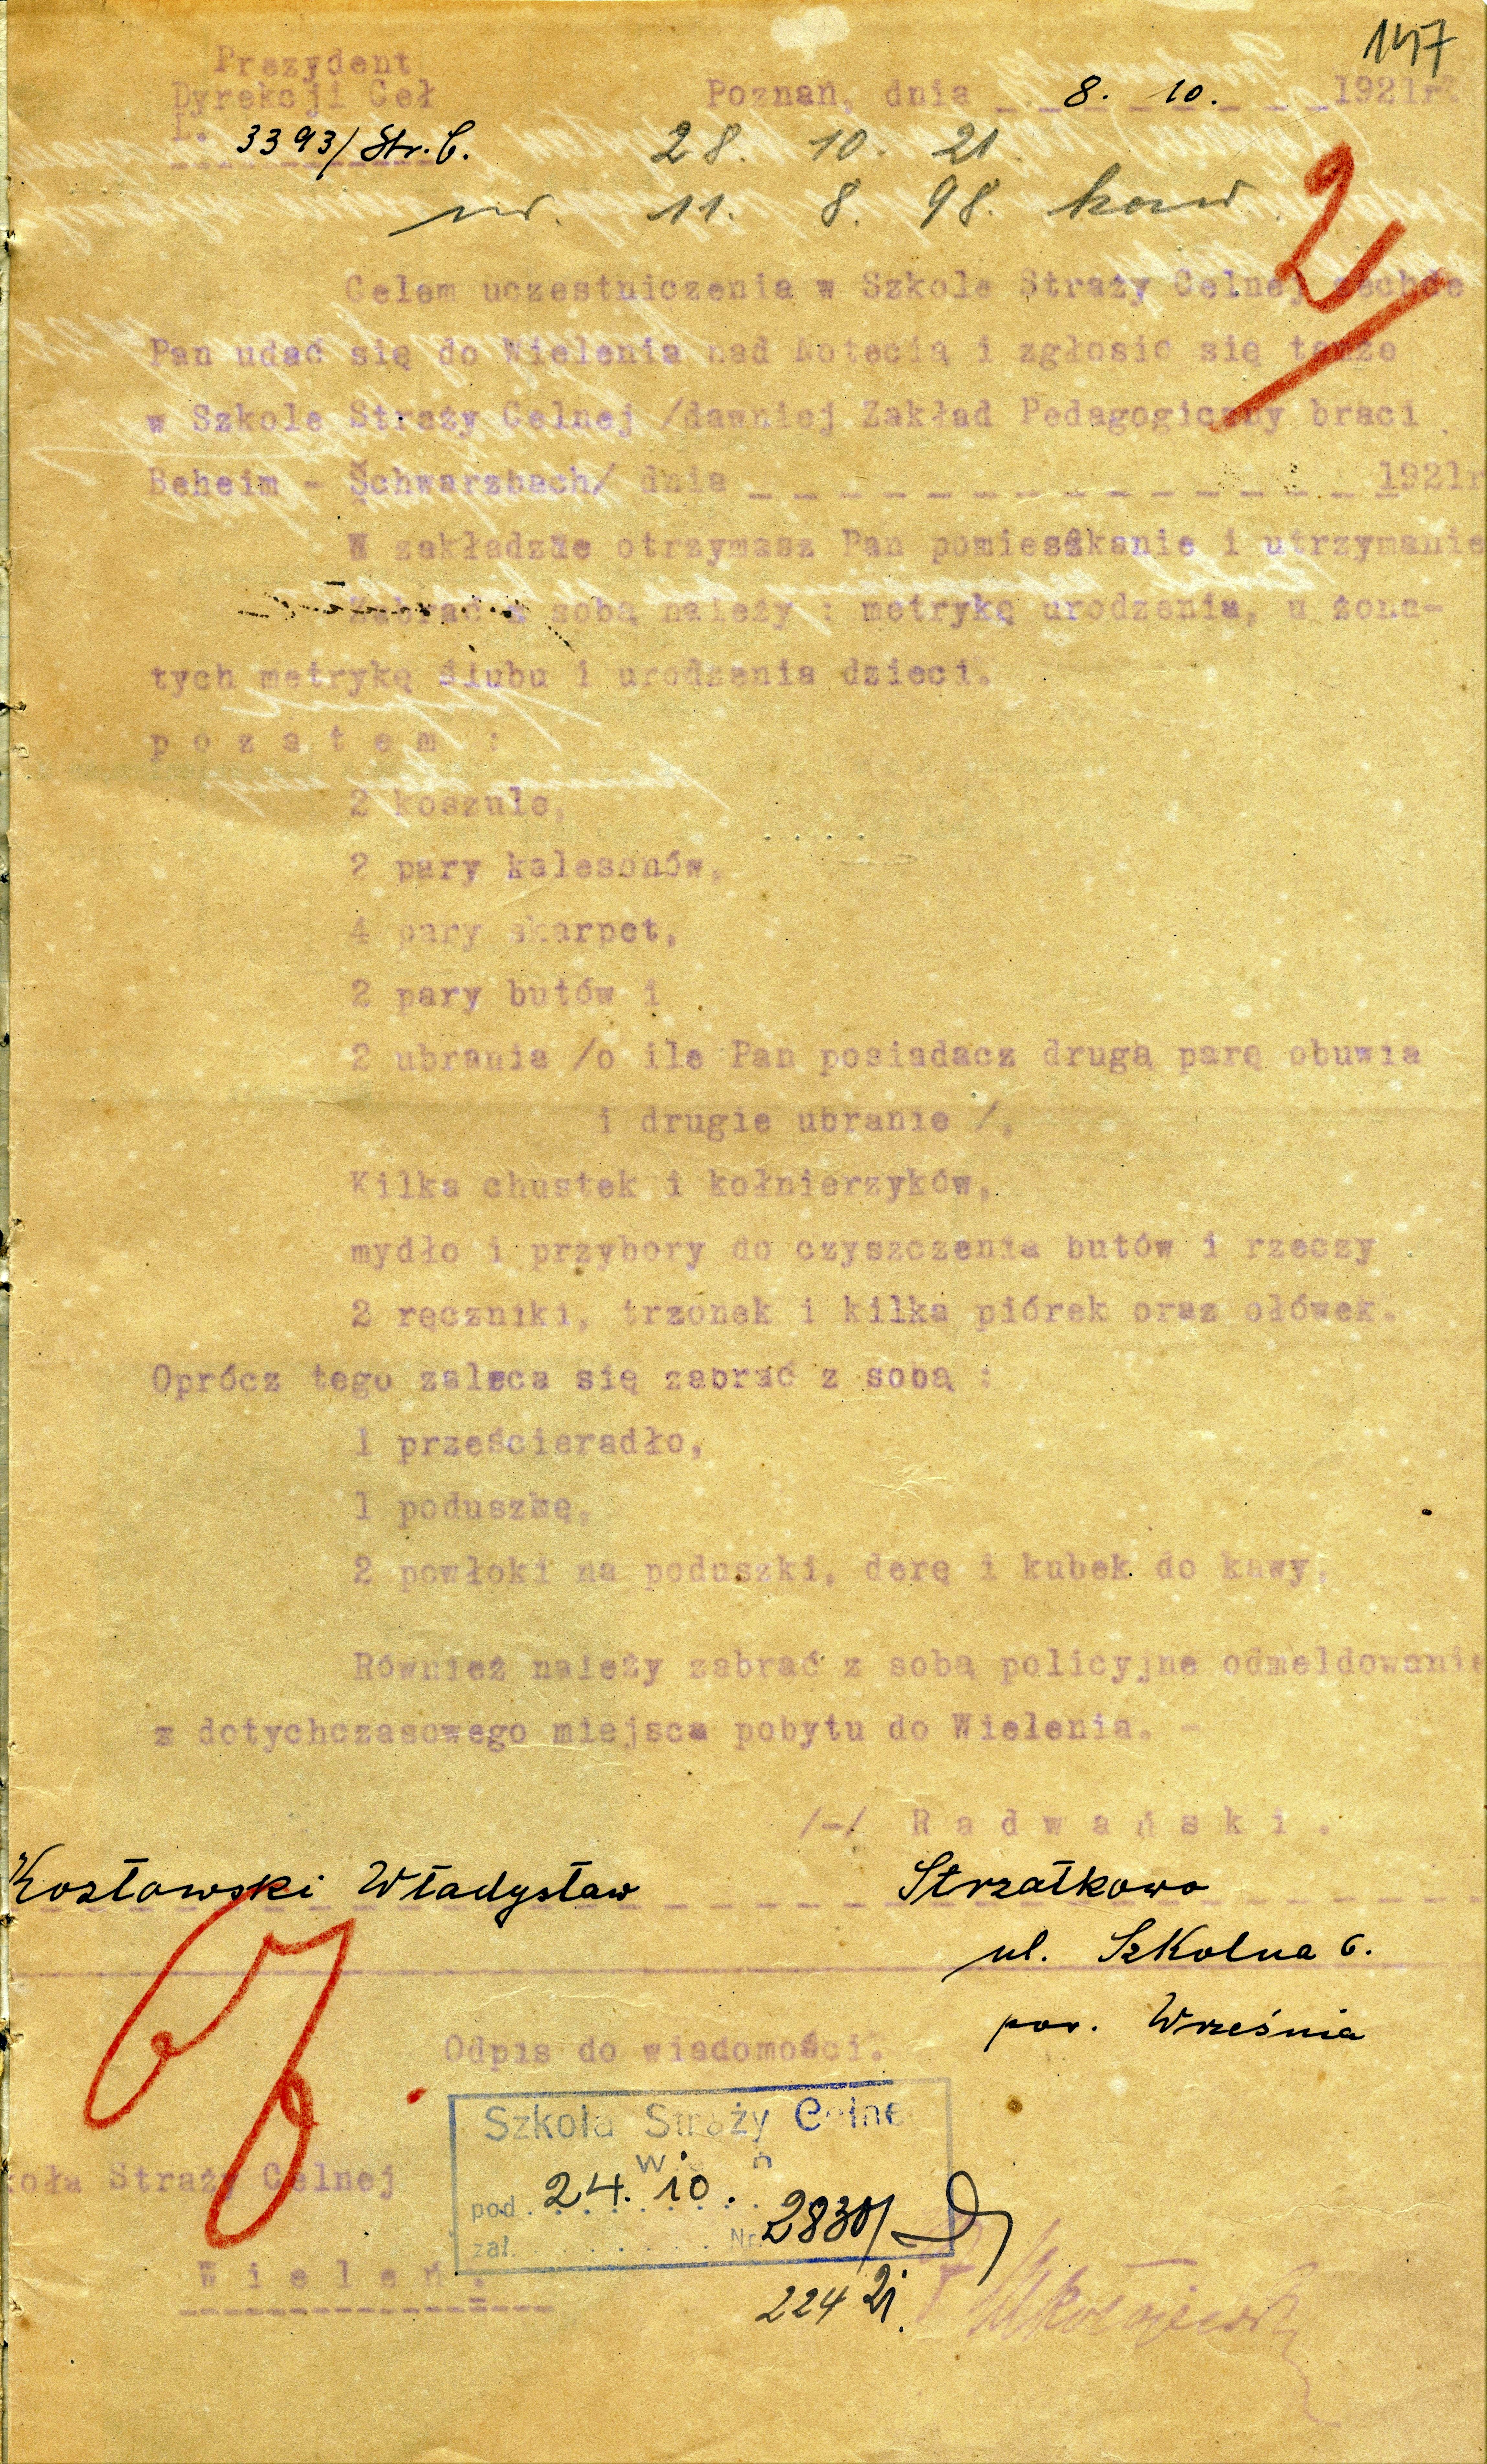 147
Prezydent
Dyrekcji Ceł
L. 3393/Str. C.
Poznań, dnia _ _ 8. 10. _ _ _ 1921r
28. 10. 21
ur. 11. 8. 98. kaw.
2
Celem uczestniczenia w Szkole Straży Celnej zechce
Pan udać się do Wielenia nad Notecią i zgłosić się tamże
w Szkole Straży Celnej /dawniej Zakład Pedagogiczny braci
Beheim - Schwarzbach/ dnia _ _ _ _ _ _ _ _ _ _ _ _ _ _ 1921r
W zakładzie otrzymasz Pan pomieszkanie i utrzymanie
Zabrać z sobą należy : metrykę urodzenia, u żona-
tych metrykę ślubu i urodzenia dzieci.
p o z a t e m :
2 koszule,
2 pary kalesonów,
4 pary skarpet,
2 pary butów i
2 ubrania /o ile Pan posiadacz drugą parę obuwia
i drugie ubranie /.
Kilka chustek i kołnierzyków,
mydło i przybory do czyszczenia butów i rzeczy
2 ręczniki, trzonek i kilka piórek oraz ołówek.
Oprócz tego zaleca się zabrać z sobą :
1 prześcieradło,
1 poduszkę,
2 powłoki na poduszki, derę i kubek do kawy.
Również należy zabrać z sobą policyjne odmeldowanie
z dotychczasowego miejsca pobytu do Wielenia. -
/-/ R a d w a ń s k i .
Kozłowski Władysław Strzałkowo
ul. Szkolna 6.
pow. Września
Odpis do wiadomości.
Szkoła Straży Celne
W n
pod. 24. 10.
zał. Nr. 2830/
koła Straży Celnej
W i e l e ń .
224 21.